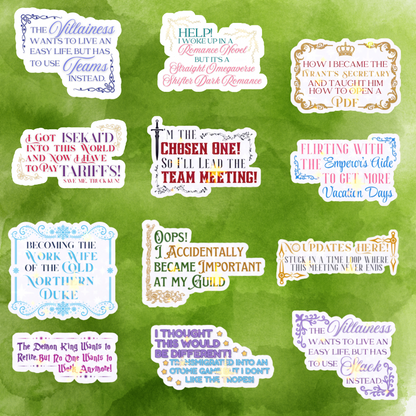 THE Villainess
WANTS TO LIVE AN
EASY LIFE, BUT HAS
TO USE Teams
INSTEAD.
HELP!
I WOKE UP IN A
Romance Novel
BUT IT'S A
Straight Omegaverse
Shifter Dark Romance
HOW I BECAME THE
TYRANT'S SECRETARY
AND TAUGHT HIM
HOW TO OPEN A
PDF
I GOT ISEKAI'D
INTO THIS WORLD
AND NOW I HAVE
TO PAY TARIFFS!
SAVE ME, TRUCK KUN!
I'M THE
CHOSEN ONE!
SO I'LL LEAD THE
TEAM MEETING!
FLIRTING WITH
THE Emperor's Aide
TO GET MORE
Vacation Days
BECOMING THE
WORK WIFE
OF THE COLD
NORTHERN
DUKE
OOPS!
I ACCIDENTALLY
BECAME IMPORTANT
AT MY GUILD
NO UPDATES HERE!
STUCK IN A TIME LOOP WHERE
THIS MEETING NEVER ENDS
The Demon King Wants to
Retire, But No One Wants to
Work Anymore!
I THOUGHT
THIS WOULD
BE DIFFERENT!
TRANSMIGRATED INTO AN
OTOME GAME BUT I DON'T
LIKE THE TROPES!
THE Villainess
WANTS TO LIVE AN
EASY LIFE, BUT HAS
TO USE Slack
INSTEAD.